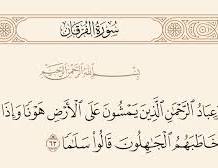 سُورَةُ الْفُرْقَانِ
بِسْمِ اللَّهِ الرَّحْمَٰنِ الرَّحِيمِ
عِبَادُ ٱلرَّحْمَٰنِ ٱلَّذِينَ يَمْشُونَ عَلَى ٱلْأَرْضِ هَوْنًا وَإِذَا
خَاطَبَهُمُ ٱلْجَٰهِلُونَ قَالُوا۟ سَلَٰمًا ٦٣